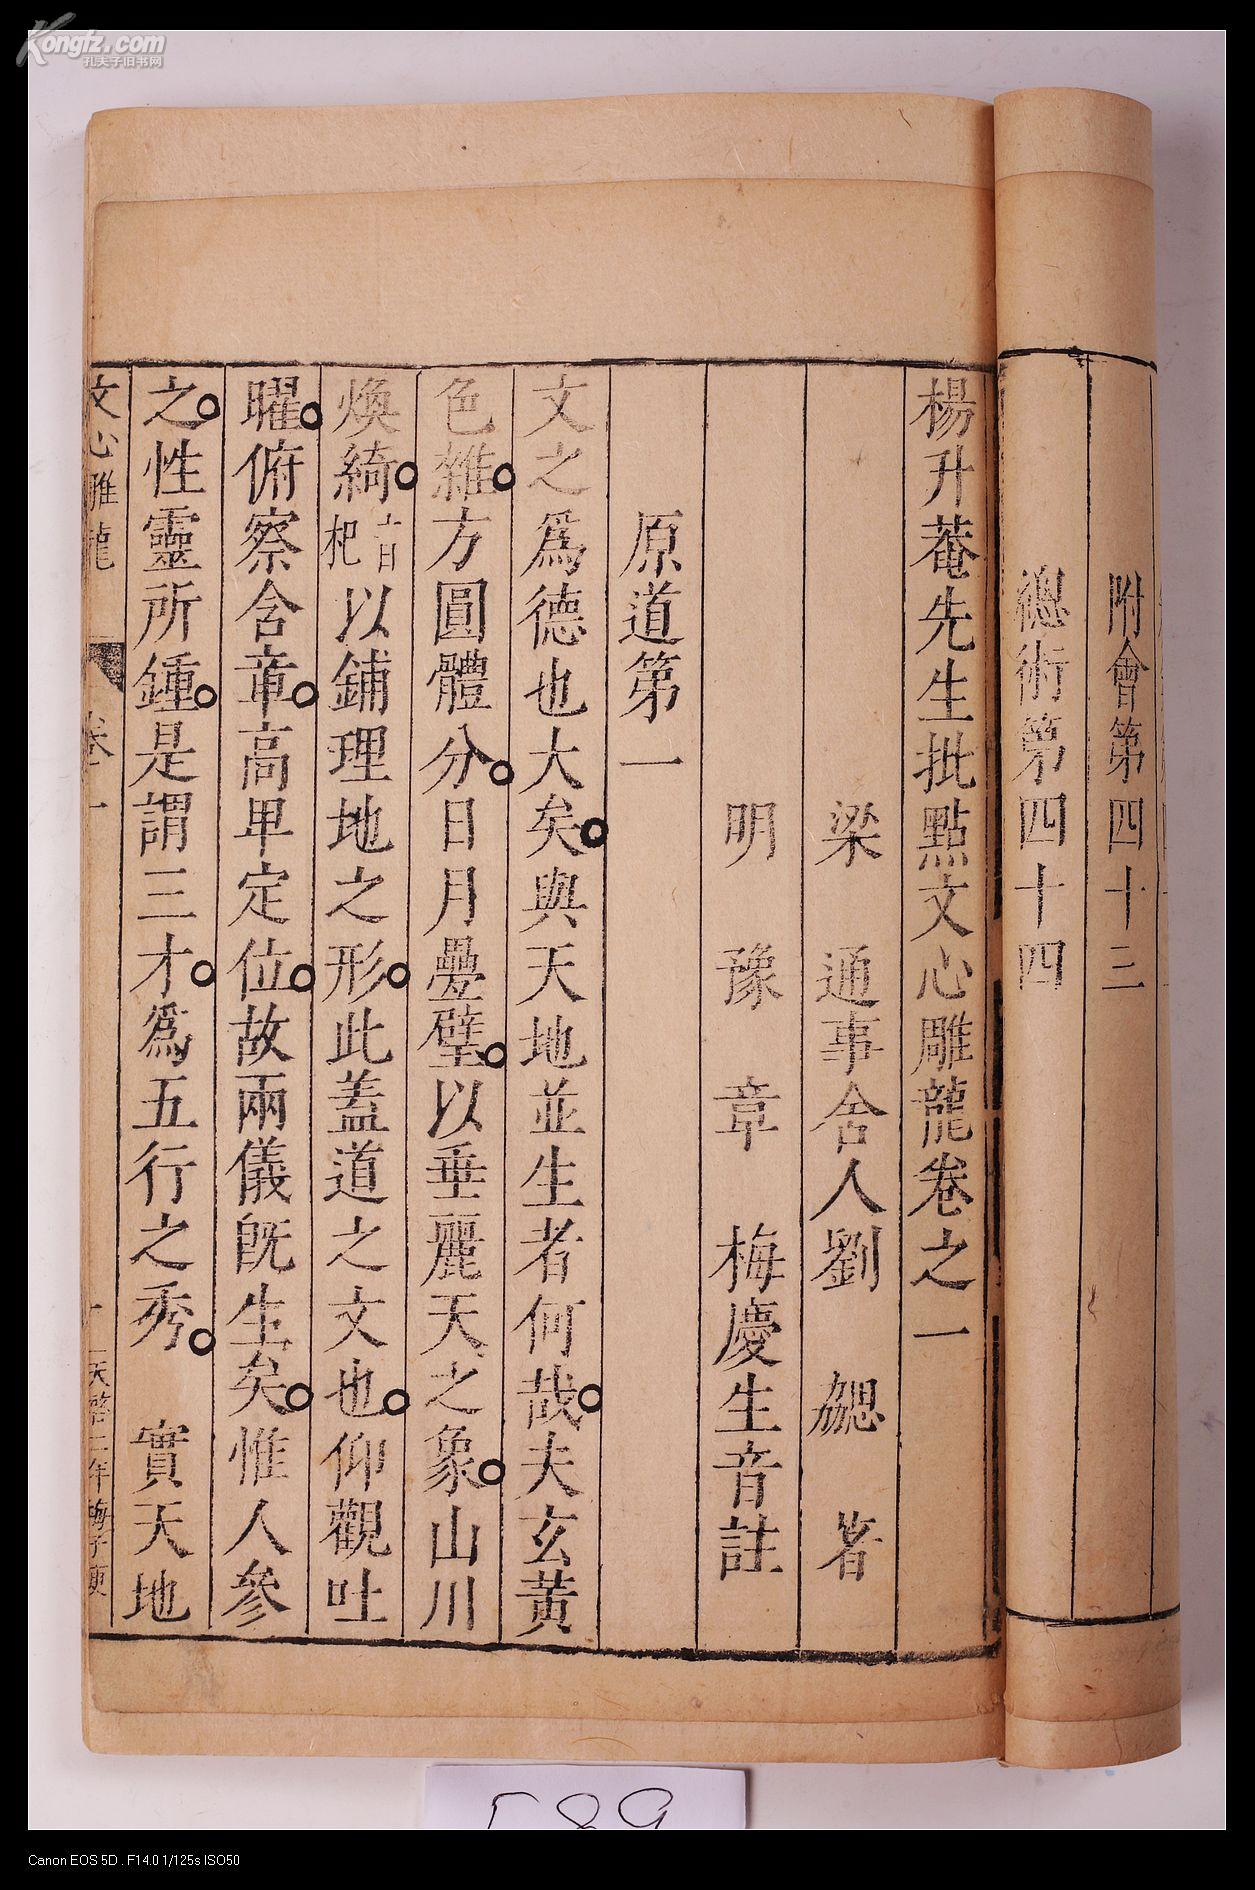 Kongfz.com
孔夫子旧书网
附會第四十三
總術第四十四
楊升菴先生批點文心雕龍卷之一
梁 通事舍人劉 勰 著
明 豫 章 梅慶生音註
原道第一
文之爲德也大矣與天地並生者何哉夫玄黃
色雜方圓體分日月疊璧以垂麗天之象山川
煥綺音杞以鋪理地之形此蓋道之文也仰觀吐
曜俯察含章高卑定位故兩儀旣生矣惟人參
之性靈所鍾是謂三才爲五行之秀 實天地
文心雕龍 卷一 天啓二年梅子庾
589
Canon EOS 5D . F14.0 1/125s ISO50